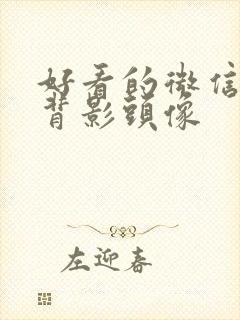 好看的微信
背影頭像
左迎春